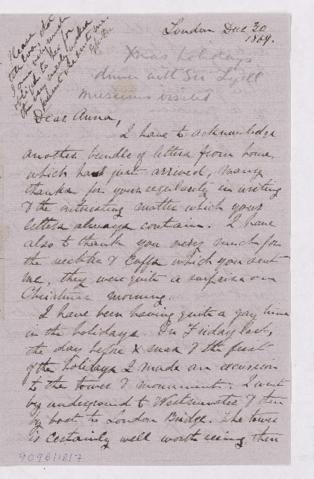 London Dec 30
1869.
Xmas holidays
dinner with Sir Lyell
museums visited
Dear Anna,
I have to acknowledge
another bundle of letters from home
which have just arrived, many
thanks for your regularity in writing
& the interesting matter which your
letters always contain. I have
also to thank you very much for
the necktie & Cuffs which you sent
me, they were quite a surprise on
Christmas morning.
I have been having quite a gay time
in the holidays. On Friday last,
the day before Xmas & the first
of the holidays I made an excursion
to the tower & Monument. I went
by underground to Westminster & then
by boat to London Bridge. The tower
is certainly well worth seeing, then
909611817